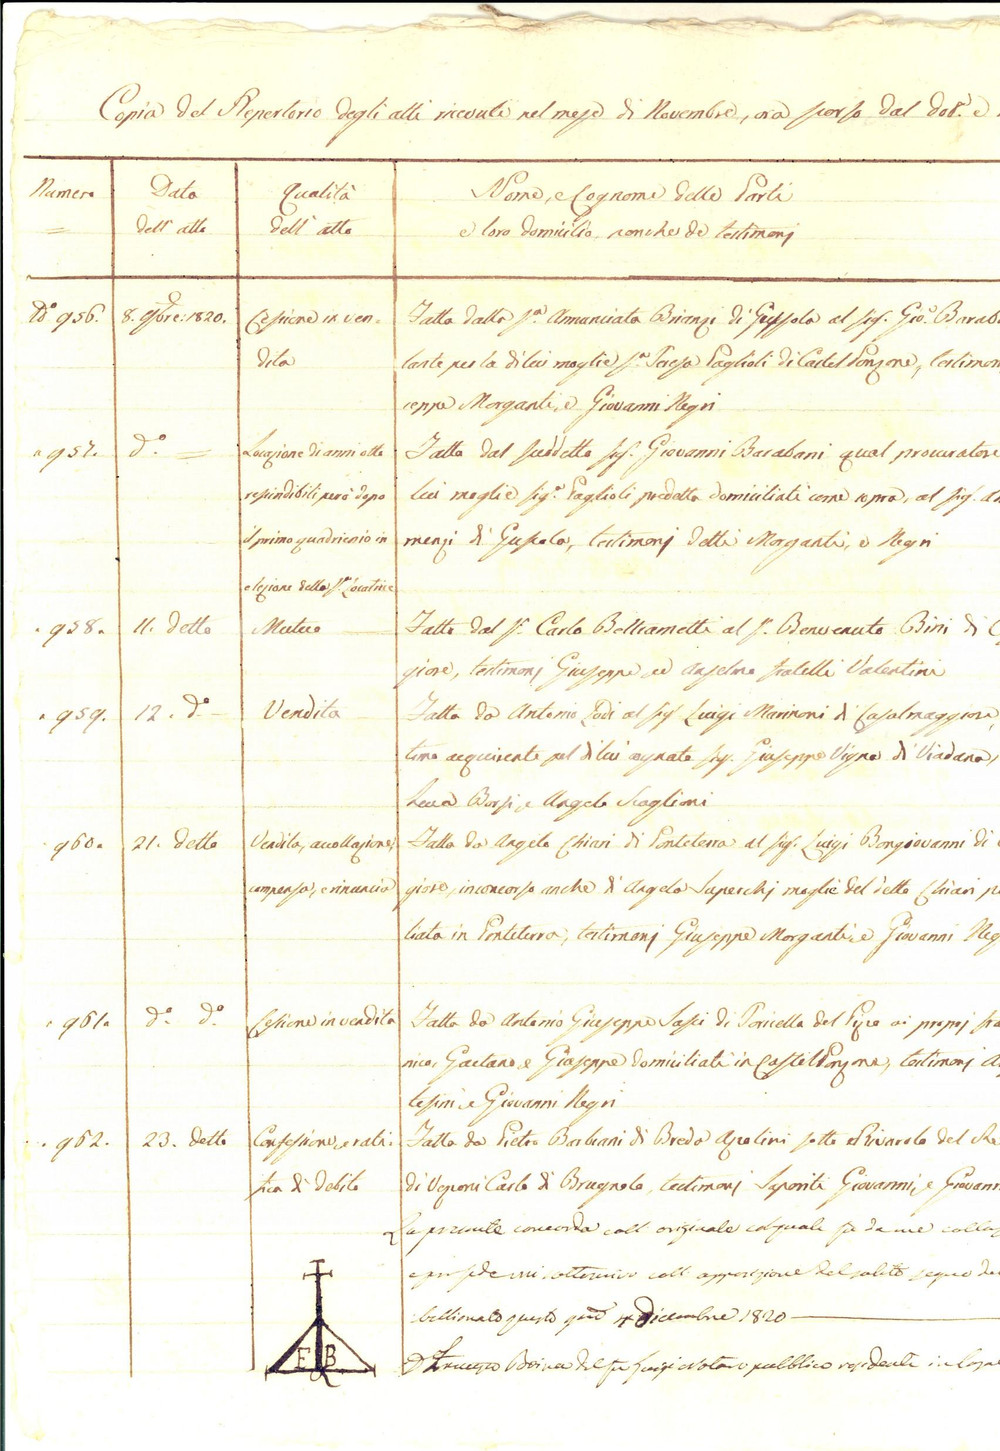 Copia del Repertorio degli atti ricevuti nel mese di Novembre, ora scorso dal dot.r e
Numero
Data dell' atto
Qualità dell' atto
Nome, e Cognome delle Parti
e loro domicilio, nonchè de testimonj
No 956. 8. 9bre: 1820. Cessione in ven-
dita
Fatta dalla Sa. Annunciata Brianzi di Gussola al sig. Gio. Barab
tante per la di lui moglie Sa. Teresa Paglioli di Castel Ponzone, testimon
ceppe Morganti, e Giovanni Negri
" 957. do. =
Locazione di anni otto
rescindibili però dopo
il primo quadriennio in
elezione della Sa. Locatrice
Fatta dal suddetto sig. Giovanni Barabani qual procuratore
lui moglie siga. Paglioli predetta domiciliati come sopra, al sig. An
menzi di Gussola, testimonj detti Morganti, e Negri
" 958. 11. detto Mutuo
Fatto dal S. Carlo Beltrametti al S. Benvenuto Bini di C
giore, testimonj Giuseppe, ed Anselmo fratelli Valentini
" 959. 12. do. Vendita
Fatta da Antonio Lodi al sig. Luigi Marinoni di Casalmaggiore,
tino acquirente pel di lui cognato sig. Giuseppe Vigna di Viadana,
Luca Borsi, e Angelo Scaglioni
960. 21. detto Vendita, accollazione,
compensa, e rinuncia
Fatta da Angelo Chiari di Ponteterra al sig. Luigi Bongiovanni di
giore, in concorso anche di Angela Superchj moglie del detto Chiari
liata in Ponteterra, testimonj Giuseppe Morganti, e Giovanni Neg
" 961. do. do. Cessione in vendita
Fatta da Antonio Giuseppe Sassi di Toricella del Pizzo ai proprj fra
nico, Gaetano, e Giuseppe domiciliati in Castel Ponzone, testimonj A
lesini, e Giovanni Negri
" 962. 23. detto Confessione, e rati-
fica di debito
Fatta da Pietro Barbani di Breda Azolini sotto Rivarolo del Re
di Vezzoni Carlo di Brugnolo, testimonj Saponiti Giovanni, e Giovan
La presente concorda coll' originale col quale fu da me collaz
e per fede mi sottoscrivo coll' apposizione del solito segno del
tabellionato questo giorno 4 Dicembre 1820
FB
Dr. Francesco Boina del fu Luigi Notaro pubblico residente in Casal